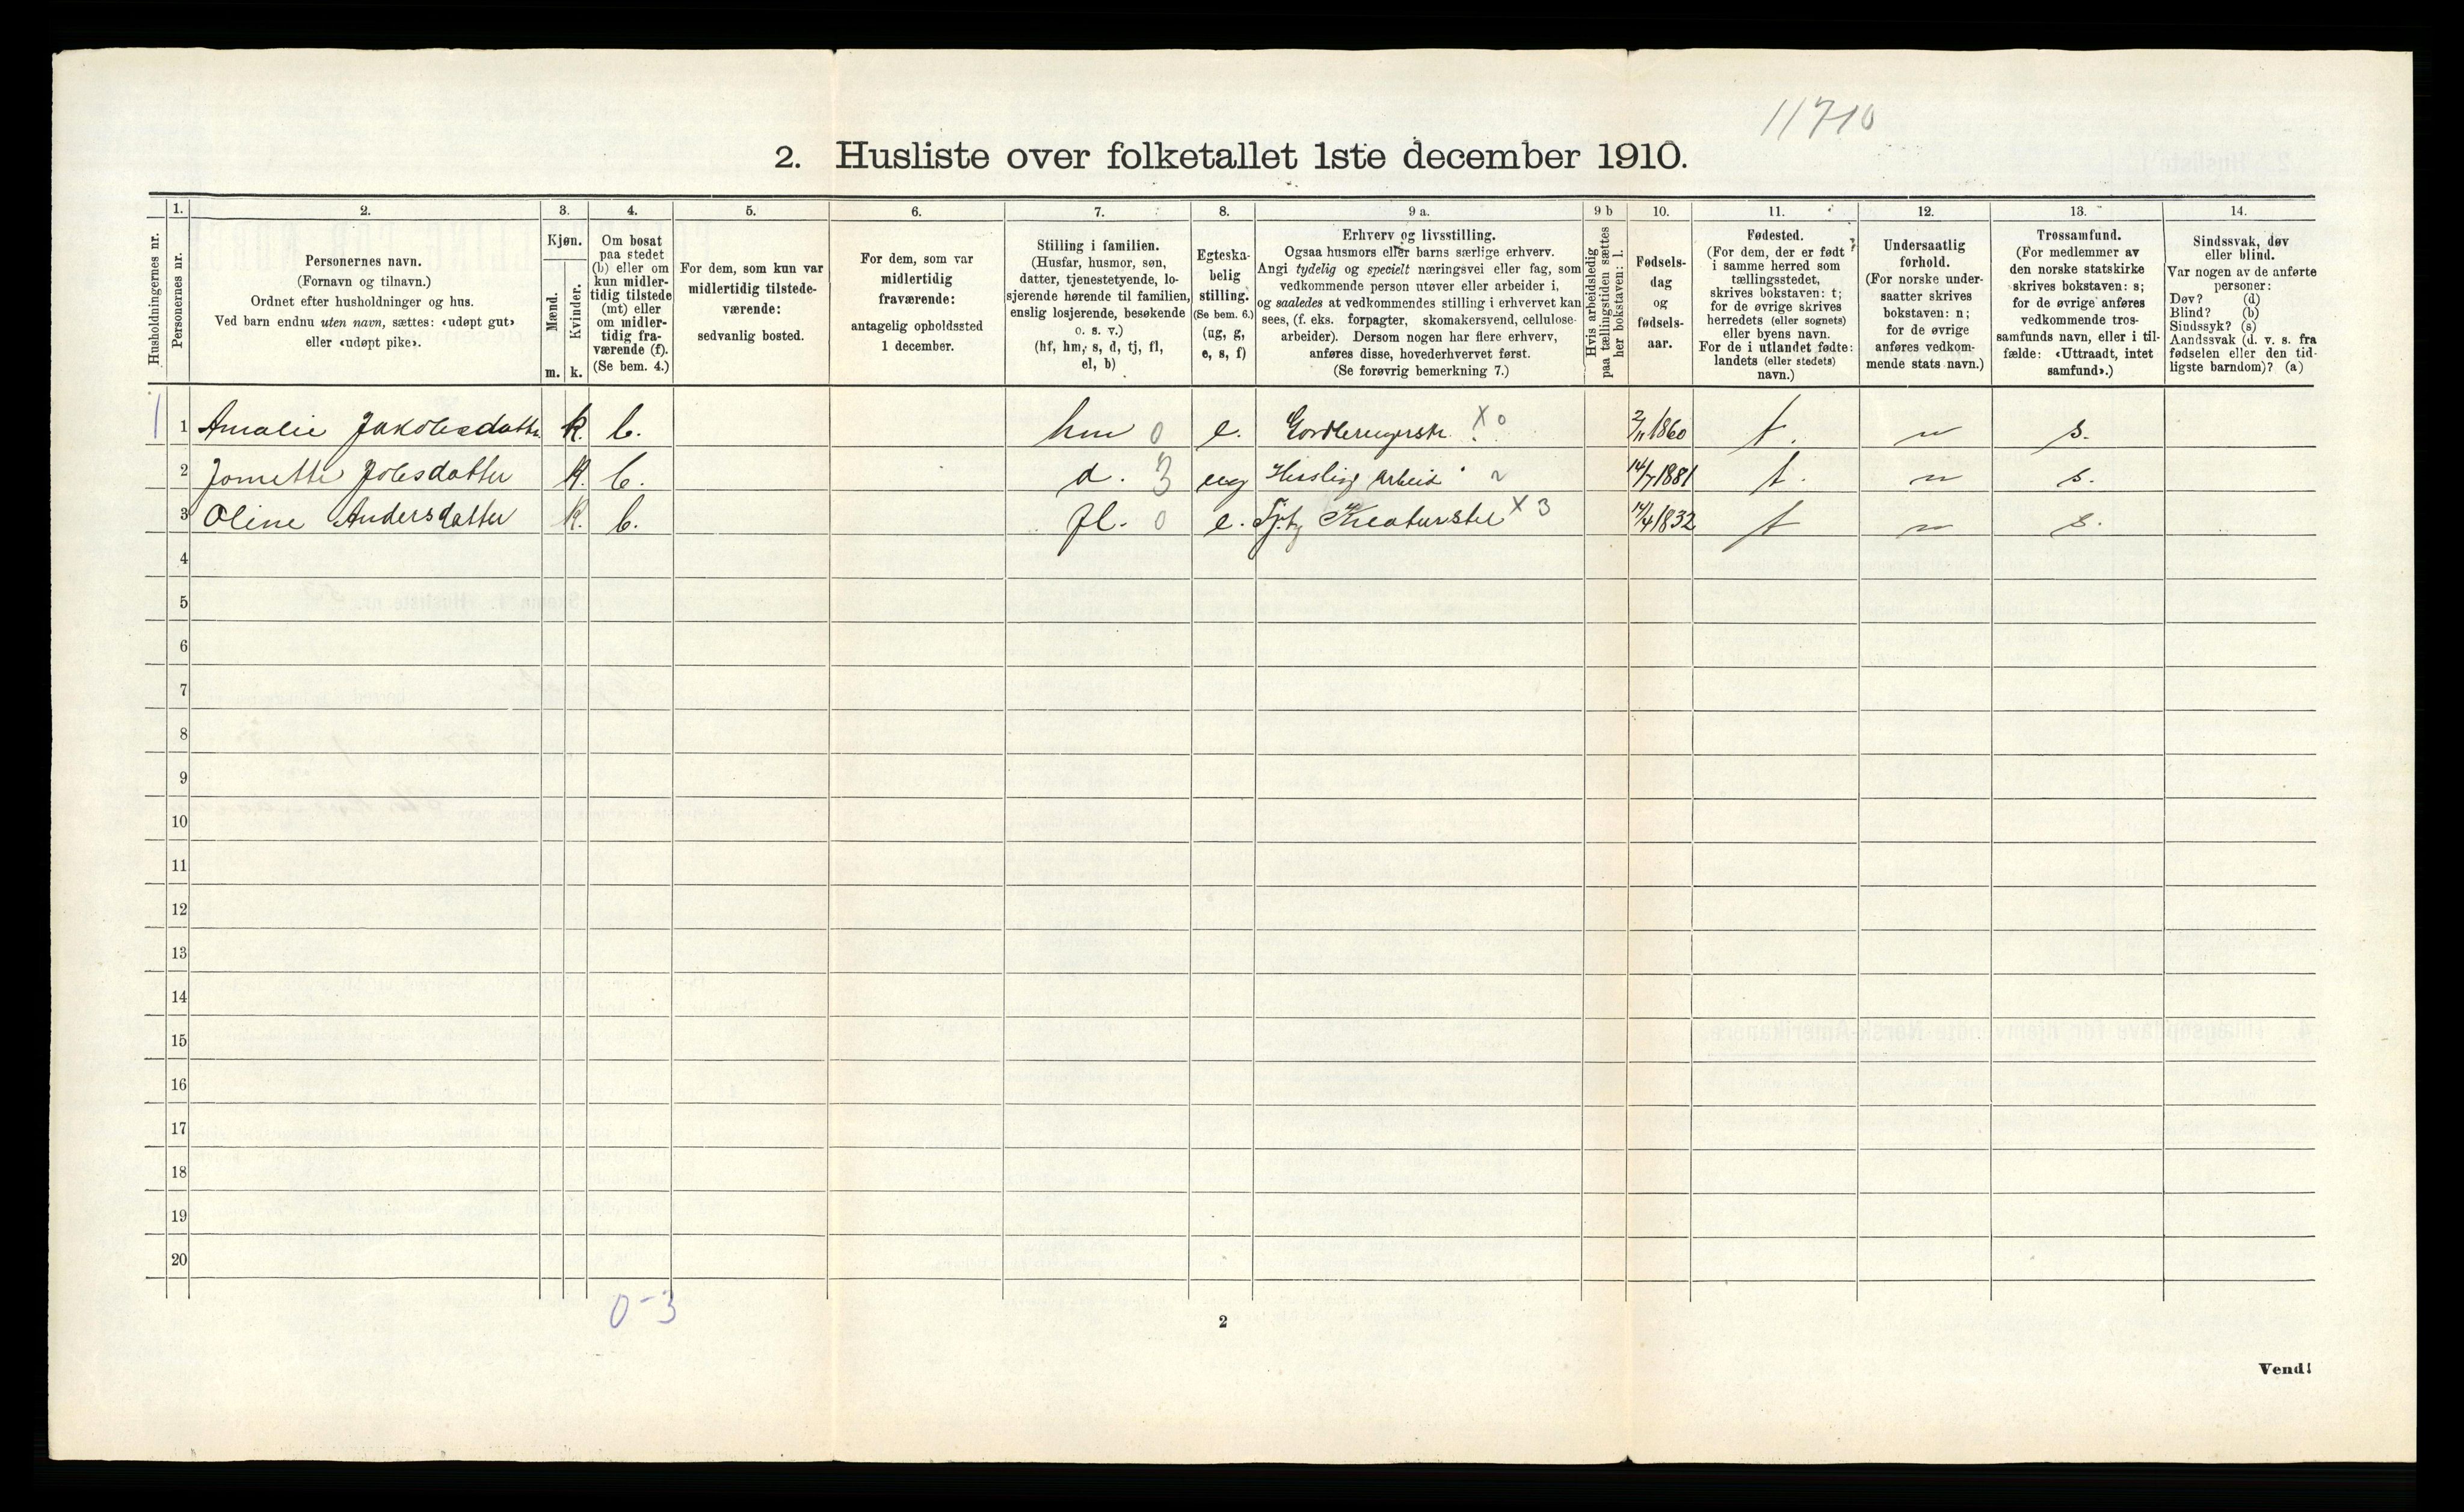 11710
2. Husliste over folketallet 1ste december 1910.
Husholdningernes nr.
1.
Personernes nr.
2.
Personernes navn.
(Fornavn og tilnavn.)
Ordnet efter husholdninger og hus.
Ved barn endnu uten navn, sættes: «udøpt gut»
eller «udøpt pike».
3.
Kjøn.
Mænd.
Kvinder.
m. k.
4.
Om bosat
paa stedet
(b) eller om
kun midler-
tidig tilstede
(mt) eller
om midler-
tidig fra-
værende (f).
(Se bem. 4.)
5.
For dem, som kun var
midlertidig tilstede-
værende:
sedvanlig bosted.
6.
For dem, som var
midlertidig
fraværende:
antagelig opholdssted
1 december.
7.
Stilling i familien.
(Husfar, husmor, søn,
datter, tjenestetyende, lo-
sjerende hørende til familien,
enslig losjerende, besøkende
o. s. v.)
(hf, hm, s, d, tj, fl,
el, b)
8.
Egteska-
belig
stilling.
(Se bem. 6.)
(ug, g,
e, s, f)
9 a.
Erhverv og livsstilling.
Ogsaa husmors eller barns særlige erhverv.
Angi tydelig og specielt næringsvei eller fag, som
vedkommende person utøver eller arbeider i,
og saaledes at vedkommendes stilling i erhvervet kan
sees, (f. eks. forpagter, skomakersvend, cellulose-
arbeider). Dersom nogen har flere erhverv,
anføres disse, hovederhvervet først.
(Se forøvrig bemerkning 7.)
9 b
Hvis arbeidsledig
paa tællingstiden sættes
her bokstaven: l.
10.
Fødsels-
dag
og
fødsels-
aar.
11.
Fødested.
(For dem, der er født
i samme herred som
tællingsstedet,
skrives bokstaven: t;
for de øvrige skrives
herredets (eller sognets)
eller byens navn.
For de i utlandet fødte:
landets (eller stedets)
navn.)
12.
Undersaatlig
forhold.
(For norske under-
saatter skrives
bokstaven: n;
for de øvrige
anføres vedkom-
mende stats navn.)
13.
Trossamfund.
(For medlemmer av
den norske statskirke
skrives bokstaven: s;
for de øvrige anføres
vedkommende tros-
samfunds navn, eller i til-
fælde: «Uttraadt, intet
samfund».)
14.
Sindssvak, døv
eller blind.
Var nogen av de anførte
personer:
Døv? (d)
Blind? (b)
Sindssyk? (s)
Aandssvak (d. v. s. fra
fødselen eller den tid-
ligste barndom)? (a)
1 1 Amalie Jakobsdatter k. b. hm 0 e. X 0 2/11 1860 t. n s.
2 Jomette Jolesdatter k. b. d. 3 ug arbeid 14/7 1881 t. n s.
3 Oline Andersdatter k. b. fl. 0 e. Kreaturstel X 3 14/4 1832 t n s.
4
5
6
7
8
9
10
11
12
13
14
15
16
17
18
19
20
0-3
2
Vend!